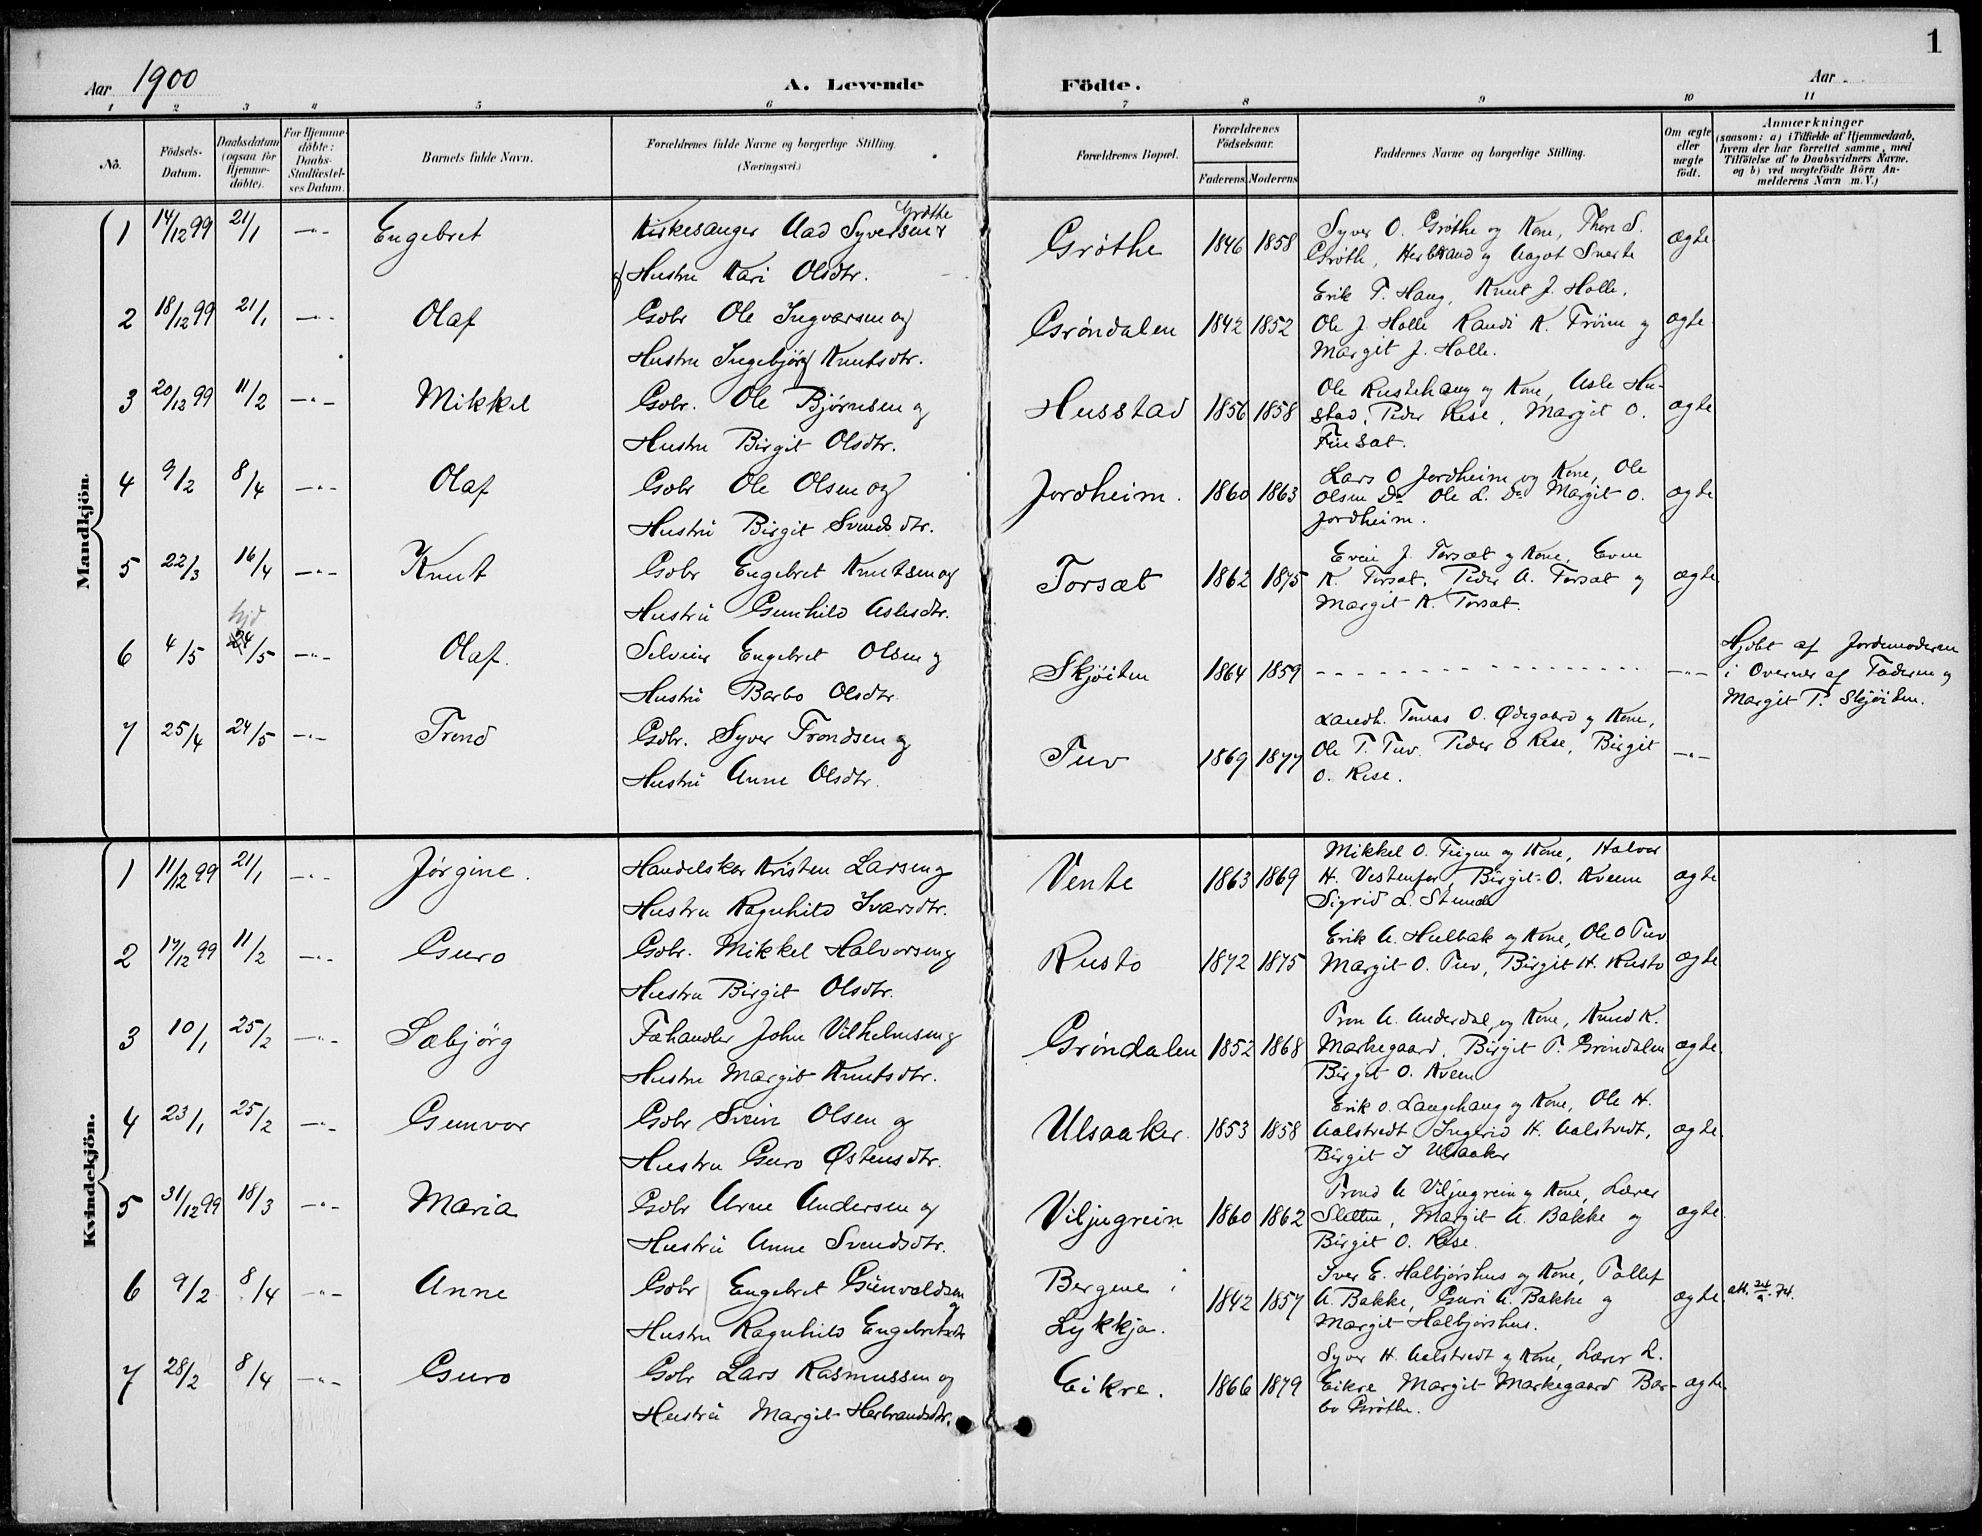 1
Aar 1900
A. Levende Födte.
Aar
1 2 3 4 5 6 7 8 9 10 11
No.
Födsels-Datum.
Daabsdatum (ogsaa for Hjemmedöbte).
For Hjemmedöbte: Daabs-Stadfæstelses Datum.
Barnets fulde Navn.
Forældrenes fulde Navne og borgerlige Stilling. (Næringsvei.)
Forældrenes Bopæl.
Forældrenes Födselsaar.
Faderens Moderens
Faddernes Navne og borgerlige Stilling.
Om ægte eller uægte födt.
Anmærkninger
(saasom: a) i Tilfælde af Hjemmedaab,
hvem der har forrettet samme, med
Tilföielse af to Daabsvidners Navne.
og b) ved uægtefödte Börn Anmelderens Navn m. V.)
Mandkjön.
1 14/12 99 21/1 —"— Engebret Kirkesanger Aad Syversen Grøthe
& Hustru Kari Olsdtr.
Grøthe 1846 1858 Syver O. Grøthe og Kone, Thor S.
Grøth, Herbrand og Aagot Svarte ægte
2 18/12 99 21/1 —"— Olaf Gbr Ole Ingvarsen og
Hustru Ingebjørg Knutsdtr.
Grøndalen 1842 1852 Erik T. Haug, Knut J. Holle,
Ole J. Holle Randi K. Trøim og
Margit J. Holle. ægte
3 20/12 99 11/2 —"— Mikkel Gbr. Ole Bjørnsen og
Hustru Birgit Olsdtr.
Husstad 1856 1858 Ole Rustehaug og Kone, Asle Hustad, Peder Rese, Margit O.
Finset. ægte
4 9/2 8/4 —"— Olaf Gbr Ole Olsen og
Hustru Birgit Svends dtr.
Jordheim. 1860 1863 Lars O Jordheim og Kone, Ole
Olsen Do Ole L. Do Margit O.
Jordheim. ægte
5 22/3 16/4 —"— Knut Gbr Engebret Knutsen og
Hustru Gunhild Aslesdtr.
Torsæt 1862 1875 Even J. Torsæt og Kone, Even
K. Torsæt, Peder A. Torsæt og
Margit K. Torsæt. ægte
6 4/5 hjd 24/5 —"— Olaf. Selveier Engebret Olsen og
Hustru Barbo Olsdtr
Skjøiten 1864 1859 - - - - - —"—
Hjdbt af Jordemoderen
i Overvær af Faderen og
Margit P. Skjøiten.
7 25/4 24/5 —"— Trond Gbr. Syver Trondsen og
Hustru Anne Olsdtr.
Tuv 1869 1877 Landh. Tomas O. Ødegaard og Kone,
Ole T. Tuv. Peder O Rese, Birgit
O. Rese. —"—
Kvindekjön.
1 11/12 99 21/1 —"— Jørgine. Handelskar Kristen Larsen og
Hustru Ragnhild Ivarsdtr.
Vente 1863 1869 Mikkel O. Feigen og Kone, Halvor
H. Vestenfor, Birgit O. Kveen
Sigrid L. Stunde ægte
2 17/12 99 11/2 —"— Guro Gbr. Mikkel Halvorsen og
Hustru Birgit Olsdtr.
Rusto 1872 1875 Erik A. Hulbak og Kone, Ole O Tuv
Margit O. Tuv, Birgit H. Rusto ægte
3 10/1 25/2 —"— Sæbjørg Fæhandler John Vilhelmsen og
Hustru Margit Knutsdtr.
Grøndalen 1852 1868 Tron A. Anderdal, og Kone, Knud K.
Markegaard, Birgit T. Grøndalen
Birgit O. Kveen ægte.
4 23/1 25/2 —"— Gunvor Gbr Svein Olsen og
Hustru Guro Østensdtr.
Ulsaaker. 1853 1858 Erik O. Langehaug og Kone, Ole H.
Aalstvedt Ingerid H. Aalstvedt,
Birgit J Ulsaaker ægte.
5 31/12 99 18/3 —"— Maria Gbr Arne Andersen og
Hustru Anne Svendsdtr.
Viljugrein 1860 1862 Trond A Viljugrein og Kone, Lærer
Slette, Margit A. Bakke og
Birgit O. Rese. ægte.
6 9/2 8/4 —"— Anne Gbr Engebret Gunvaldsen og
Hustru Ragnhild Engebretsdtr
Bergene i
Lykkja. 1842 1857 Iver E. Halbjørshus og Kone, Tollef
A. Bakke, Guri A. Bakke og
Margit Halbjørshus. ægte. att. 24/9. 74.
7 28/2 8/4 —"— Guro Gbr Lars Rasmussen og
Hustru Margit Herbrandsdtr.
Eikre. 1866 1879 Syver H. Aalstvedt og Kone, Lærer L.
Eikre, Margit Markegaard Barbo Grøthe. ægte.